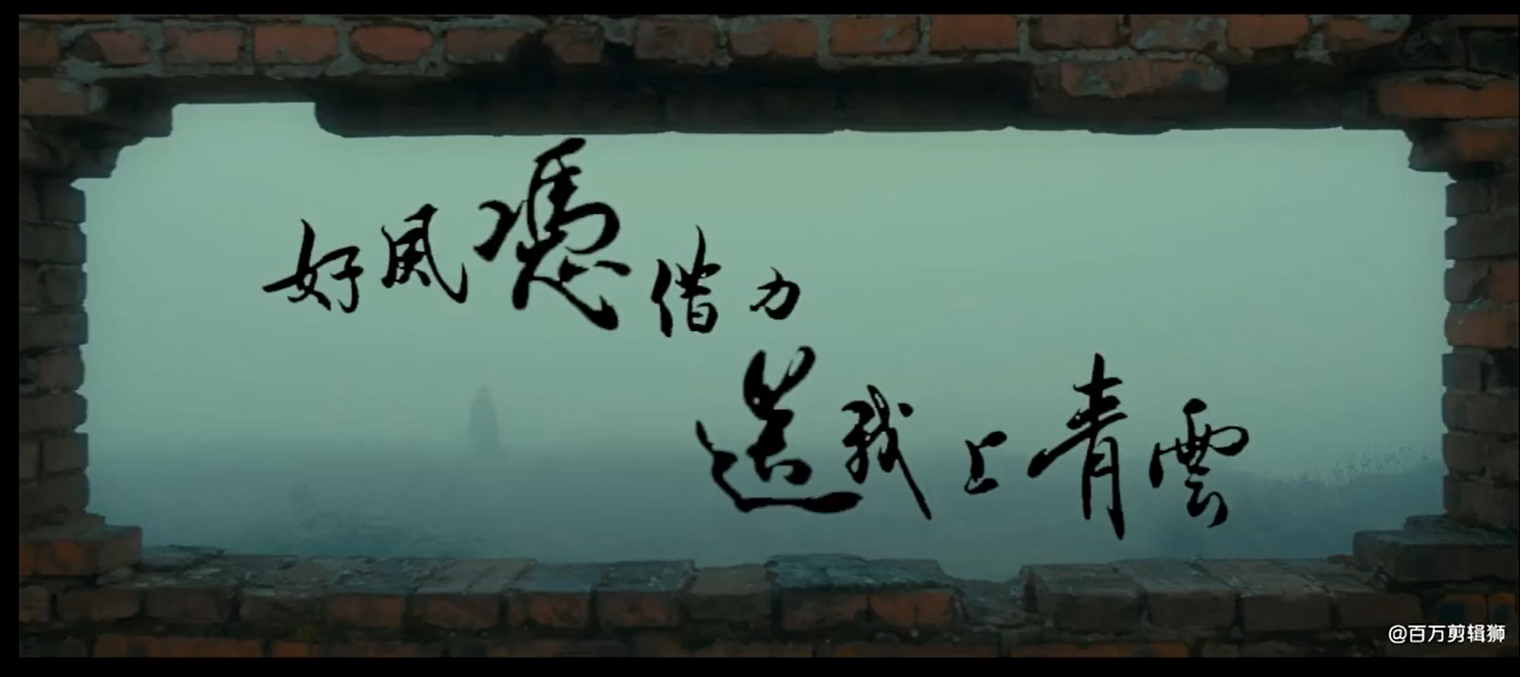 好風憑借力
送我上青雲
@百万剪辑狮